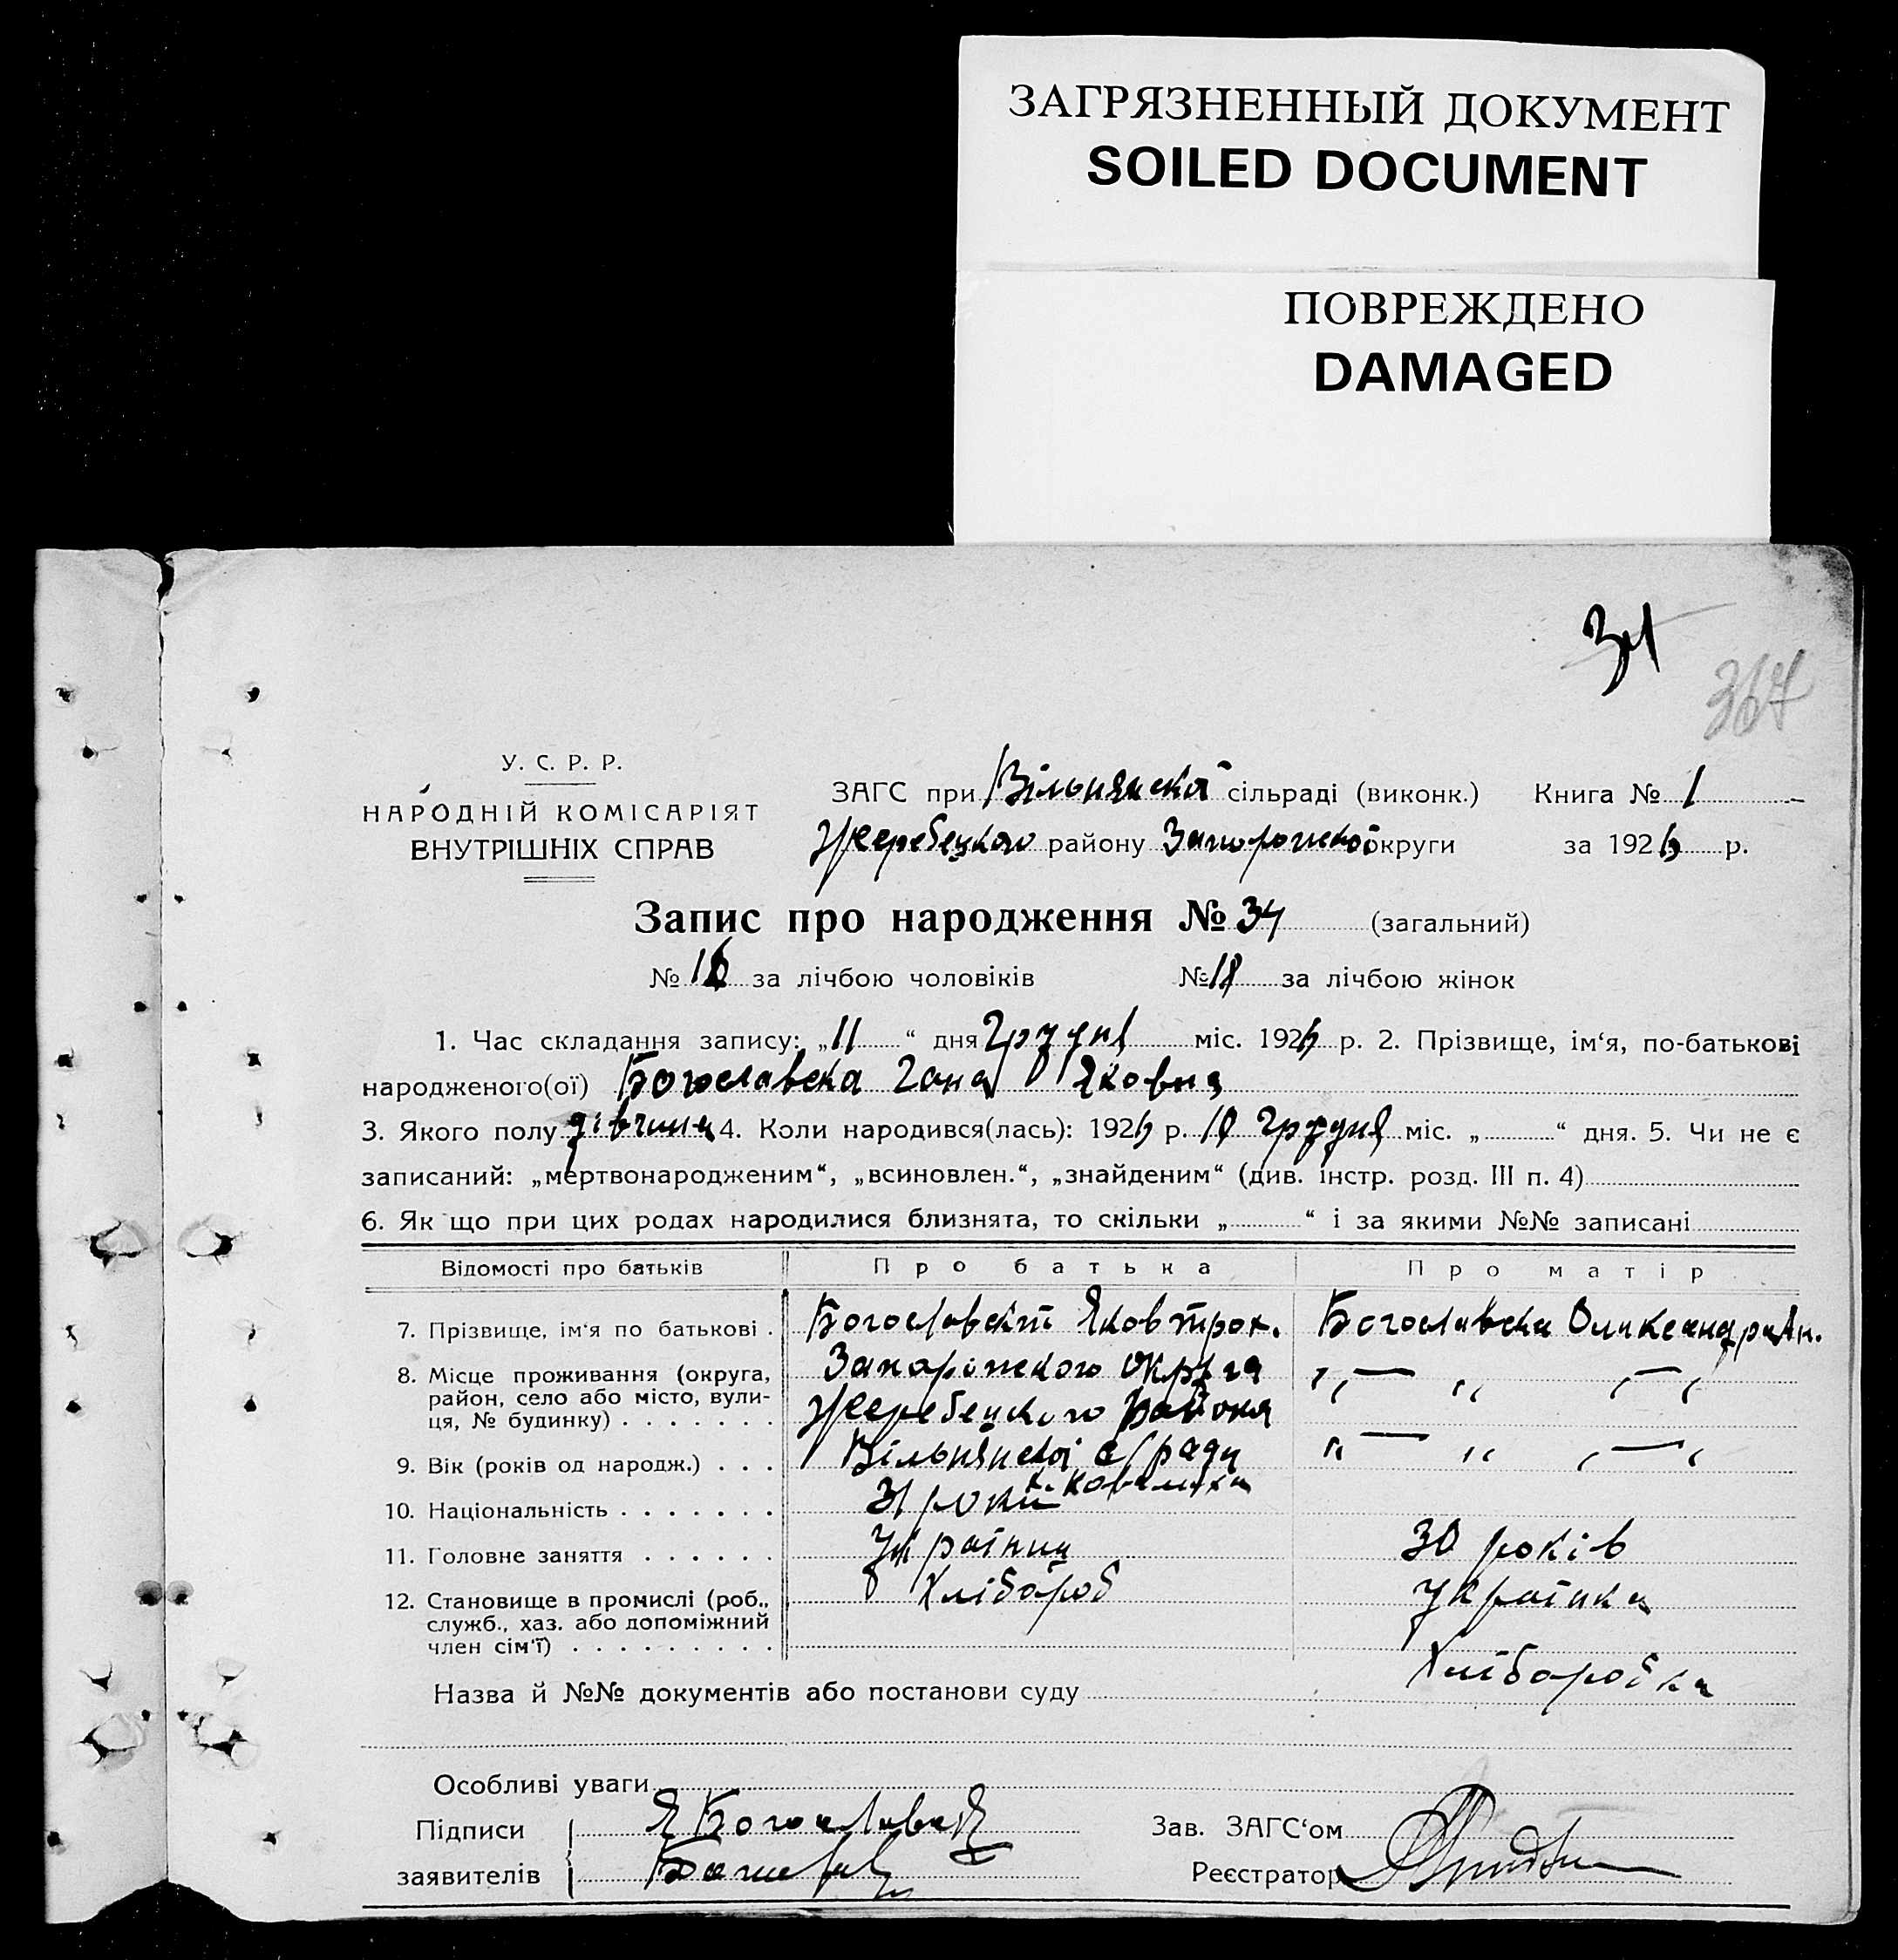 ЗАГРЯЗНЕННЫЙ ДОКУМЕНТ
SOILED DOCUMENT
ПОВРЕЖДЕНО
DAMAGED
34
У. С. Р. Р.
НАРОДНІЙ КОМІСАРІЯТ
ВНУТРІШНІХ СПРАВ
ЗАГС при Вільнянскій сільраді (виконк.) Книга № 1
Жеребецкого району Запорожской округи за 1926 р.
Запис про народження № 34 (загальний)
№ 16 за лічбою чоловіків № 18 за лічбою жінок
1. Час складання запису: „11“ дня Грудня міс. 1926 р. 2. Прізвище, ім‘я, по-батькові
народженого(ої) Богославска Гана Яковна
3. Якого полу дівчина 4. Коли народився(лась): 1926 р. 10 грудня міс. „ “ дня. 5. Чи не є
записаний: „мертвонародженим“, „всиновлен.“, „знайденим“ (див. інстр. розд. III п. 4)
6. Як що при цих родах народилися близнята, то скільки „ “ і за якими №№ записані
Відомості про батьків Про батька Про матір
7. Прізвище, ім‘я по батькові . Богославский Яков Трох. Богославска Олександра Ан.
8. Місце проживання (округа, Запорожского округа „ — „ „ — „
район, село або місто, вули-
ця, № будинку) . . . . . . . Жеребецкого района
9. Вік (років од народж.) . . . Вільнянскої с/ради „ — „ „ — „
10. Національність . . . . . . . 31 роки
11. Головне заняття . . . . . . Українец 30 років
12. Становище в промислі (роб., Хлібороб Українка
служб., хаз. або допоміжний
член сім‘ї) . . . . . . . . . Хліборобка
Назва й №№ документів або постанови суду
Особливі уваги
Підписи Я Богославский Зав. ЗАГС‘ом
заявителів Реєстратор